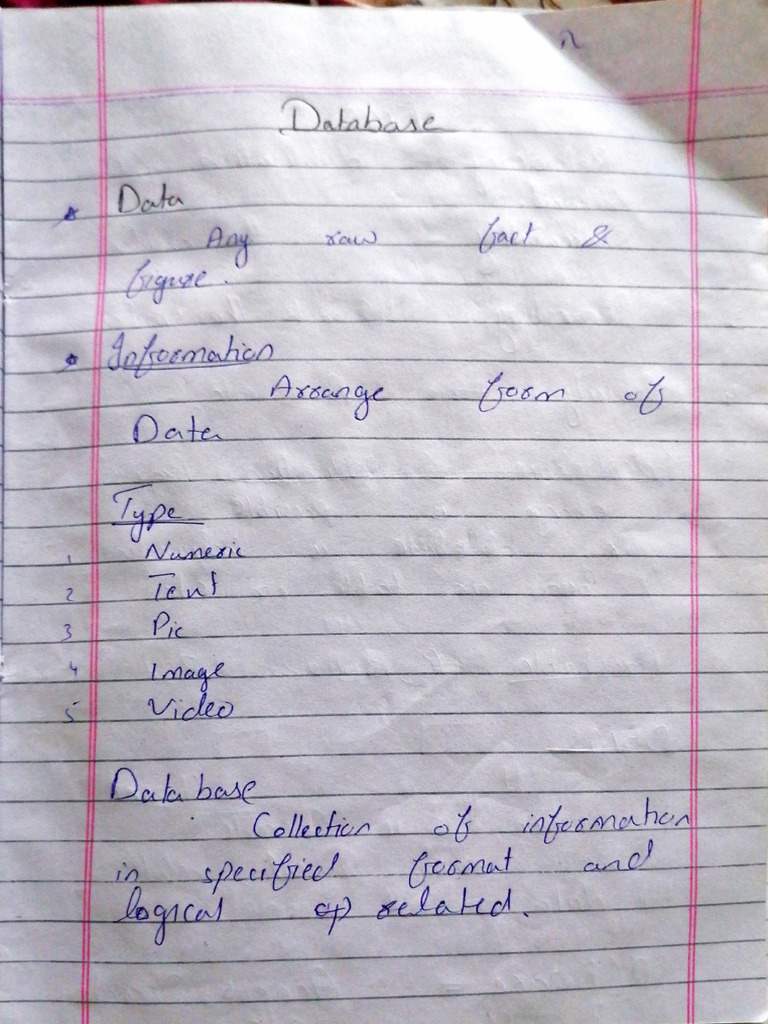 Database
Data
Any raw fact &
figure.
Information
Arrange form of
Data
Type
1 Numeric
2 Text
3 Pic
4 Image
5 Video
Database
Collection of information
in specified format and
logical related.